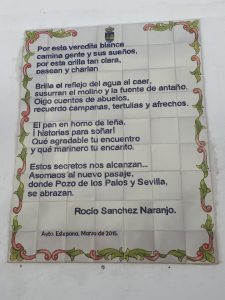 Por esta veredita blanca
camina gente y sus sueños,
por esta orilla tan clara,
pasean y charlan.
Brilla el reflejo del agua al caer,
susurran el molino y la fuente de antaño.
Oigo cuentos de abuelos,
recuerdo campanas, tertulias y afrechos.
El pan en horno de leña,
¡ historias para soñar!
Qué agradable tu encuentro
y qué marinero tu encanto.
Estos secretos nos alcanzan...
Asomaos al nuevo pasaje,
donde Pozo de los Palos y Sevilla,
se abrazan.
Rocío Sanchez Naranjo.
Ayto. Estepona, Marzo de 2015.